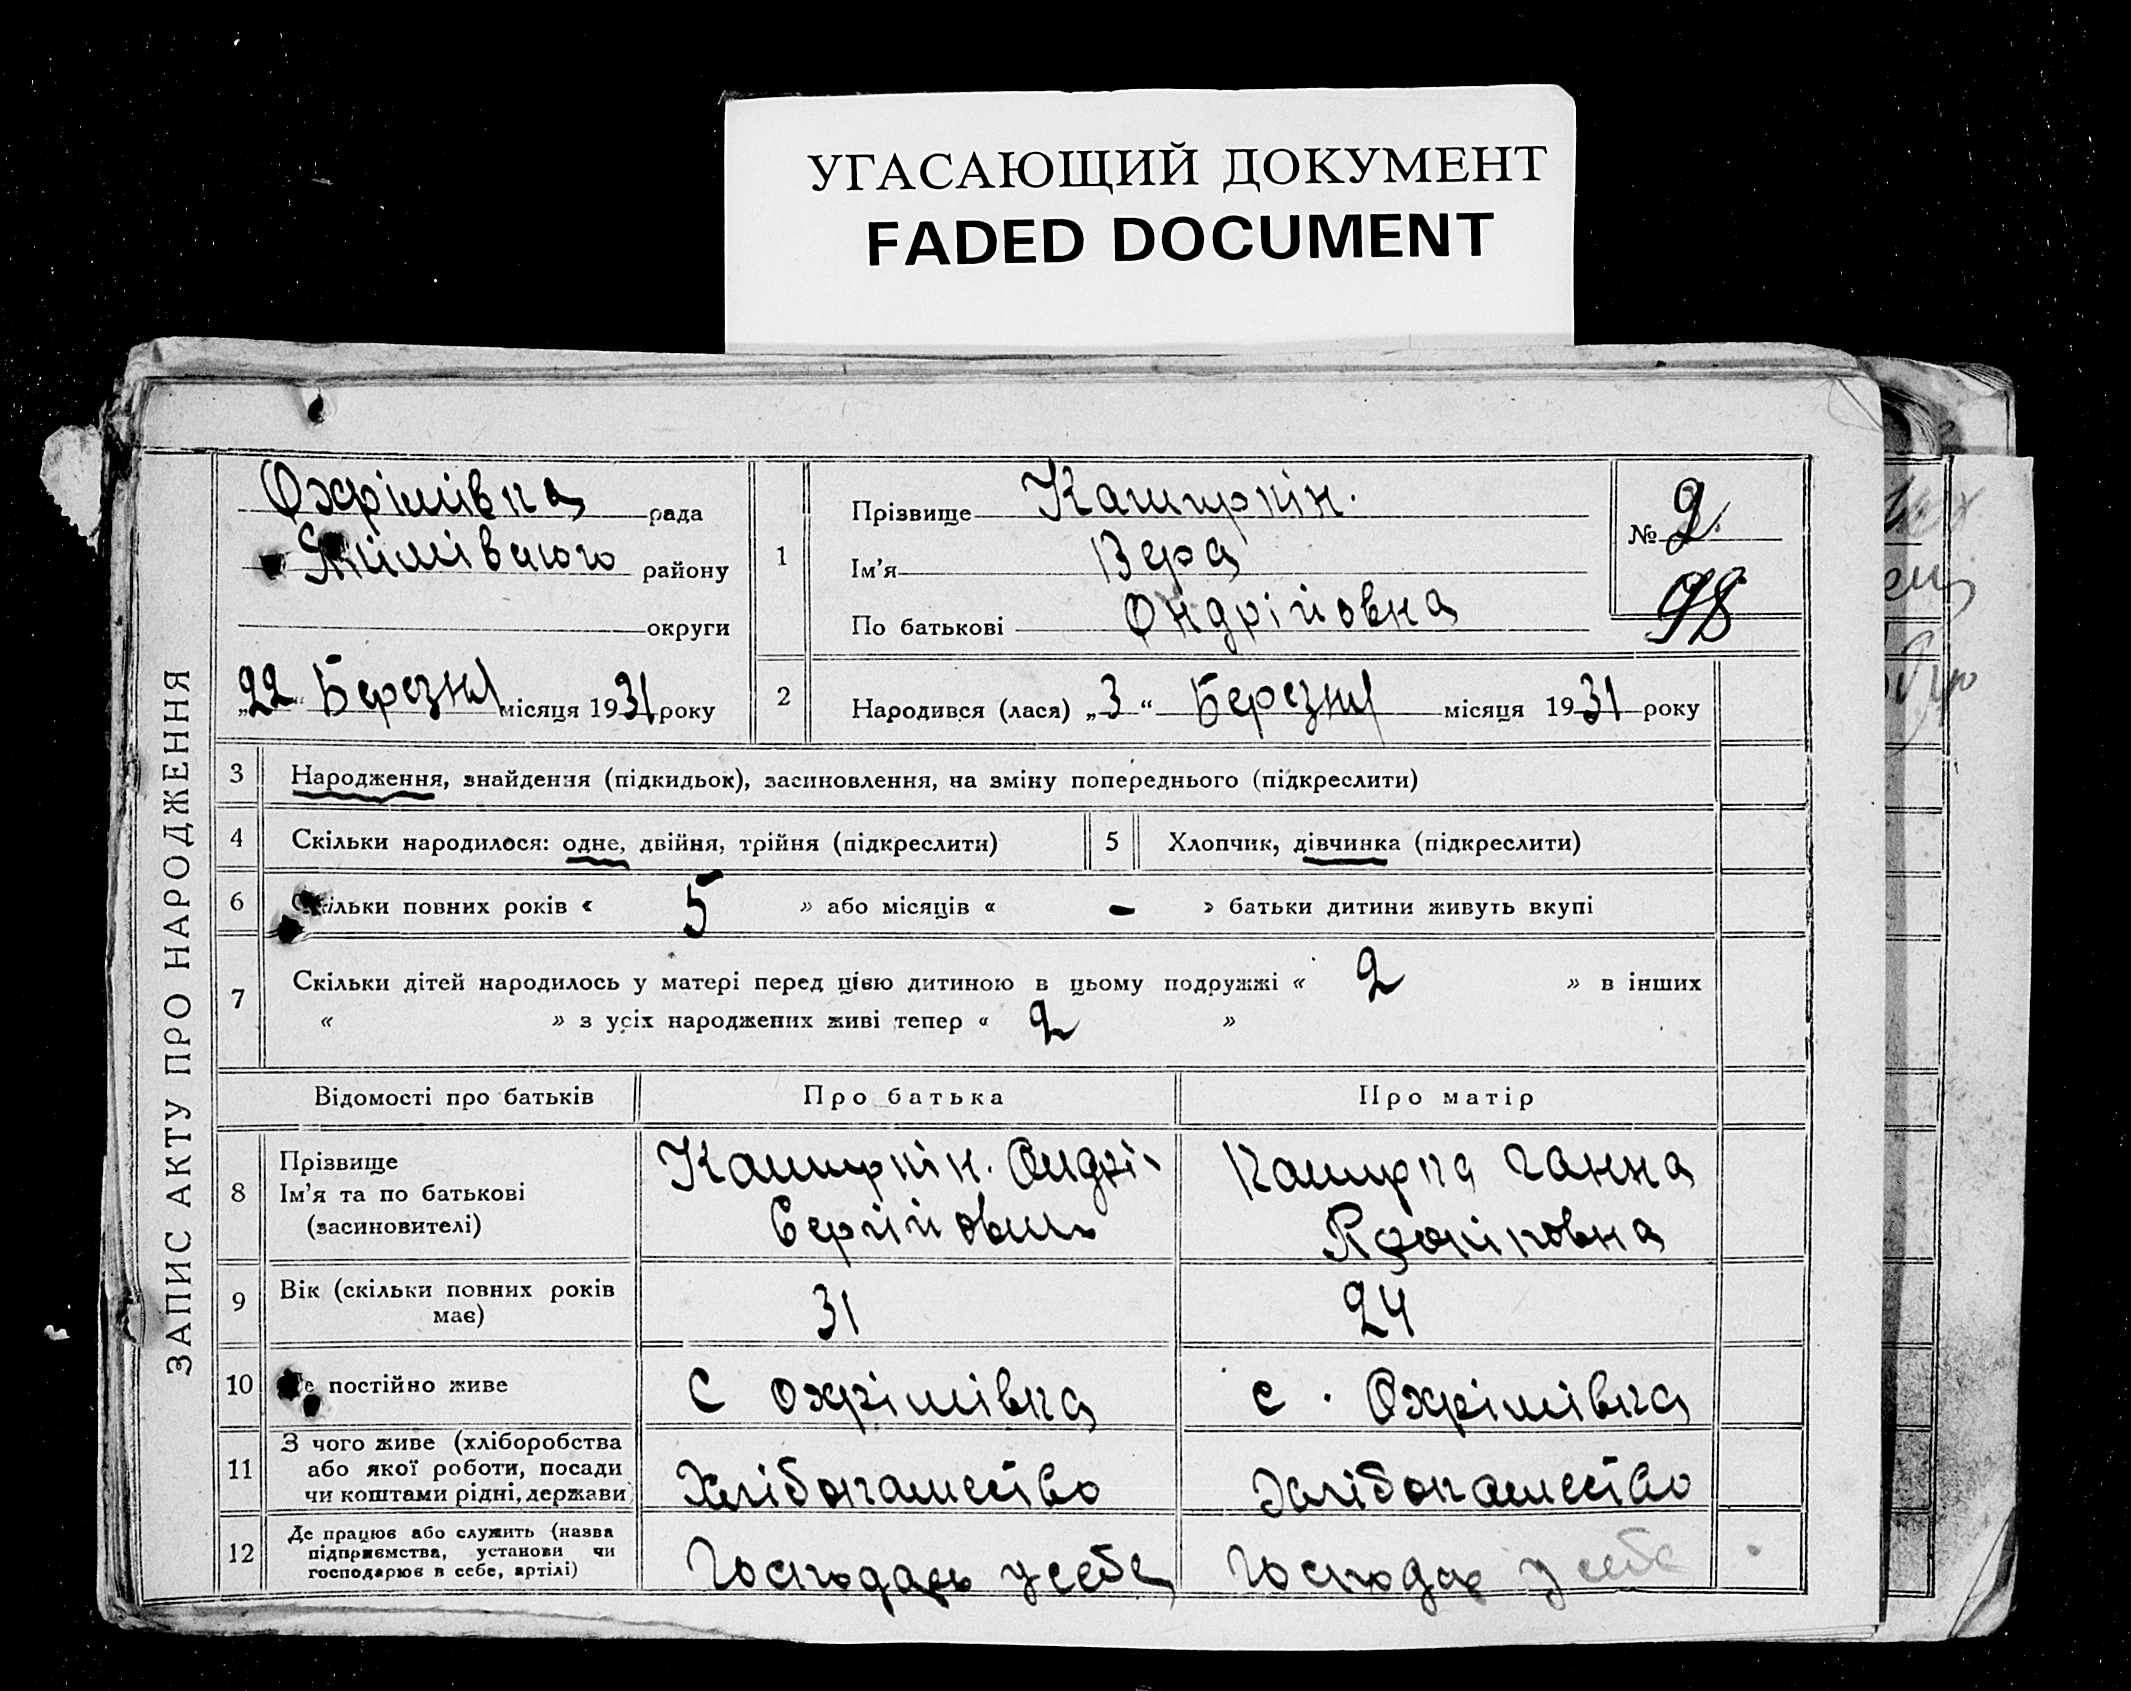 УГАСАЮЩИЙ ДОКУМЕНТ
FADED DOCUMENT
ЗАПИС АКТУ ПРО НАРОДЖЕННЯ
Охрімівка рада
Якімівского району
округи
„22“ Березня місяця 1931 року
1
Прізвище Каширкін.
Ім'я Вера
По батькові Ондрійовна
№ 2.
98
2 Народився (лася) „3“ Березня місяця 1931 року
3 Народження, знайдення (підкидьок), засиновлення, на зміну попереднього (підкреслити)
4 Скільки народилося: одне, двійня, трійня (підкреслити) 5 Хлопчик, дівчинка (підкреслити)
6 Скільки повних років « 5 » або місяців « - » батьки дитини живуть вкупі
7 Скільки дітей народилось у матері перед цією дитиною в цьому подружжі « 2 » в інших
« » з усіх народжених живі тепер « 2 »
Відомості про батьків Про батька Про матір
8 Прізвище
Ім'я та по батькові
(засиновителі)
Каширкін. Ондрі
Сергійович
Каширка Ганна
9 Вік (скільки повних років
має)
31 24
10 Де постійно живе С Охрімівка с. Охрімівка
11 З чого живе (хліборобства
або якої роботи, посади
чи коштами рідні, держави)
Хлібопашество Хлібопашество
12 Де працює або служить (назва
підприємства, установи чи
господарює в себе, артілі)
Господарь у себе Господар у себе